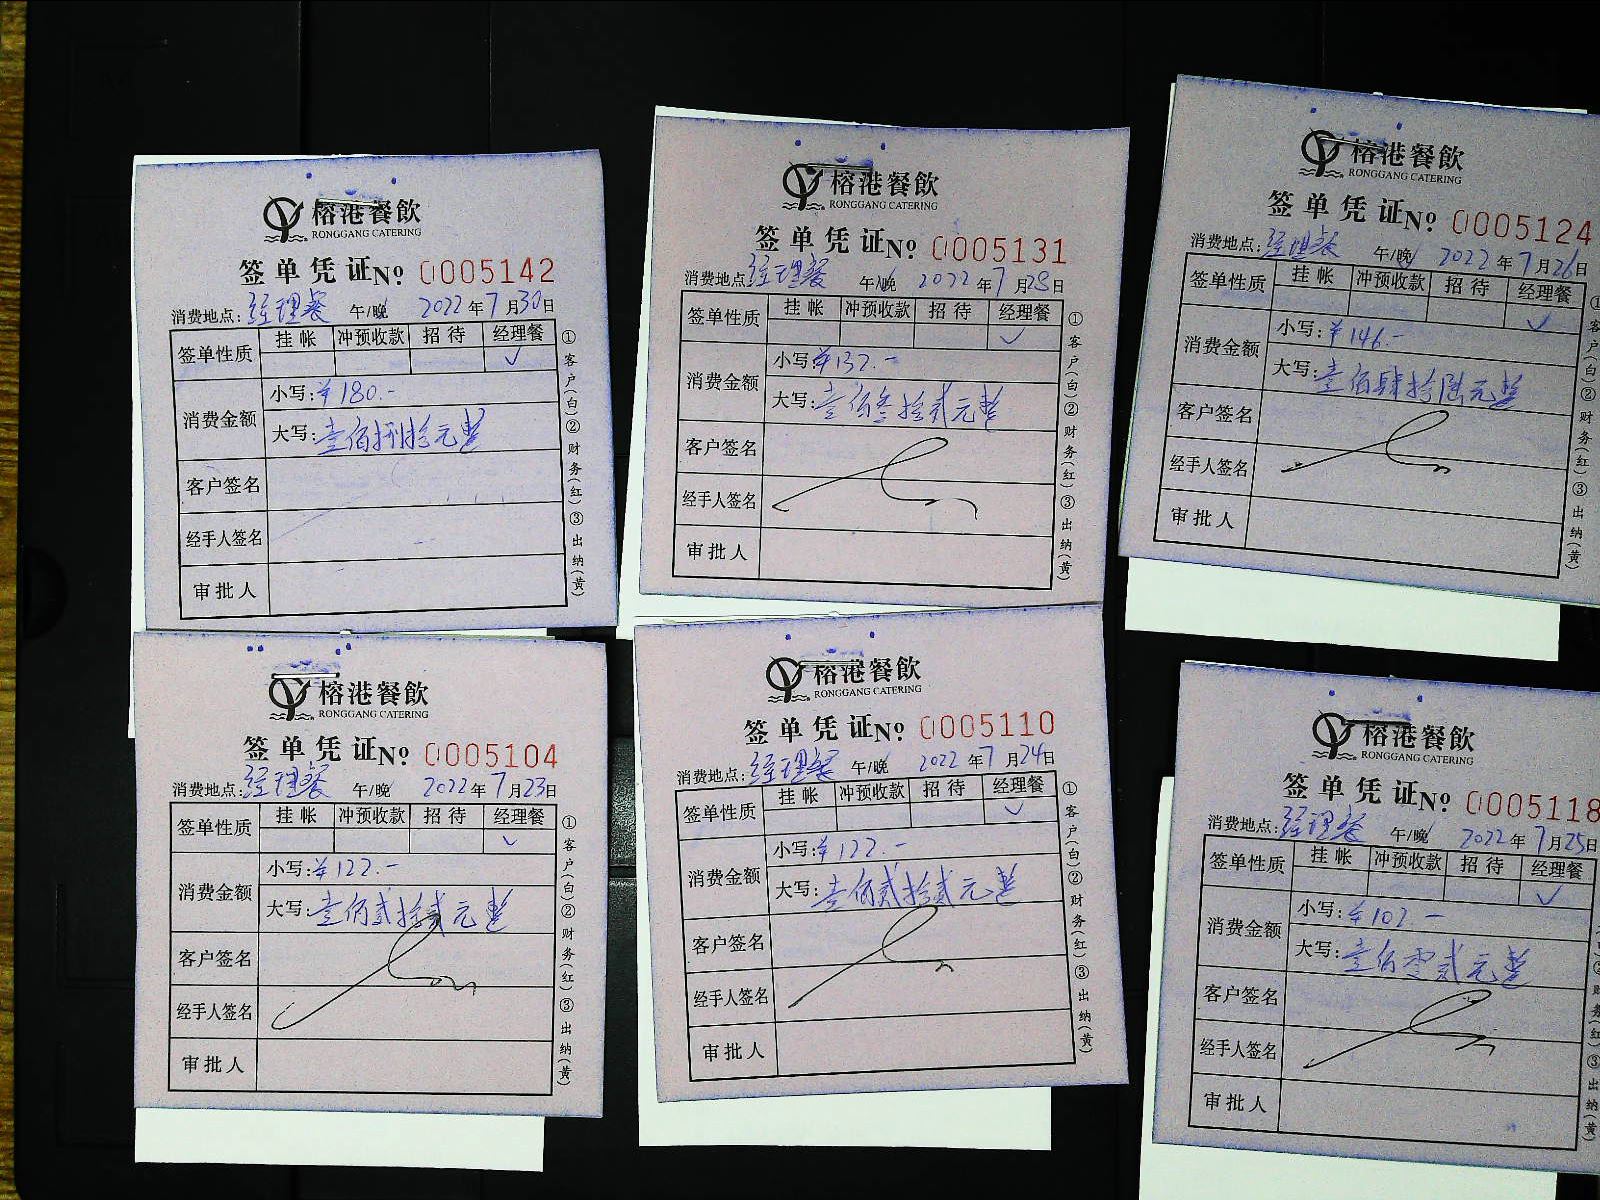 榕港餐飲
RONGGANG CATERING
签单凭证 No 0005142
消费地点:经理餐 午/晚 2022年7月30日
签单性质 挂帐 冲预收款 招待 经理餐
✓
消费金额 小写:¥180.-
大写:壹佰捌拾元整
客户签名
经手人签名
审批人
①客户(白)②财务(红)③出纳(黄)
榕港餐飲
RONGGANG CATERING
签单凭证 No 0005131
消费地点:经理餐 午/晚 2022年7月28日
签单性质 挂帐 冲预收款 招待 经理餐
✓
消费金额 小写:¥132.-
大写:壹佰叁拾贰元整
客户签名
经手人签名
审批人
①客户(白)②财务(红)③出纳(黄)
榕港餐飲
RONGGANG CATERING
签单凭证 No 0005124
消费地点:经理餐 午/晚 2022年7月26日
签单性质 挂帐 冲预收款 招待 经理餐
✓
消费金额 小写:¥146.-
大写:壹佰肆拾陆元整
客户签名
经手人签名
审批人
①客户(白)②财务(红)③出纳(黄)
榕港餐飲
RONGGANG CATERING
签单凭证 No 0005104
消费地点:经理餐 午/晚 2022年7月23日
签单性质 挂帐 冲预收款 招待 经理餐
✓
消费金额 小写:¥122.-
大写:壹佰贰拾贰元整
客户签名
经手人签名
审批人
①客户(白)②财务(红)③出纳(黄)
榕港餐飲
RONGGANG CATERING
签单凭证 No 0005110
消费地点:经理餐 午/晚 2022年7月24日
签单性质 挂帐 冲预收款 招待 经理餐
✓
消费金额 小写:¥122.-
大写:壹佰贰拾贰元整
客户签名
经手人签名
审批人
①客户(白)②财务(红)③出纳(黄)
榕港餐飲
RONGGANG CATERING
签单凭证 No 0005118
消费地点:经理餐 午/晚 2022年7月25日
签单性质 挂帐 冲预收款 招待 经理餐
✓
消费金额 小写:¥102.-
大写:壹佰零贰元整
客户签名
经手人签名
审批人